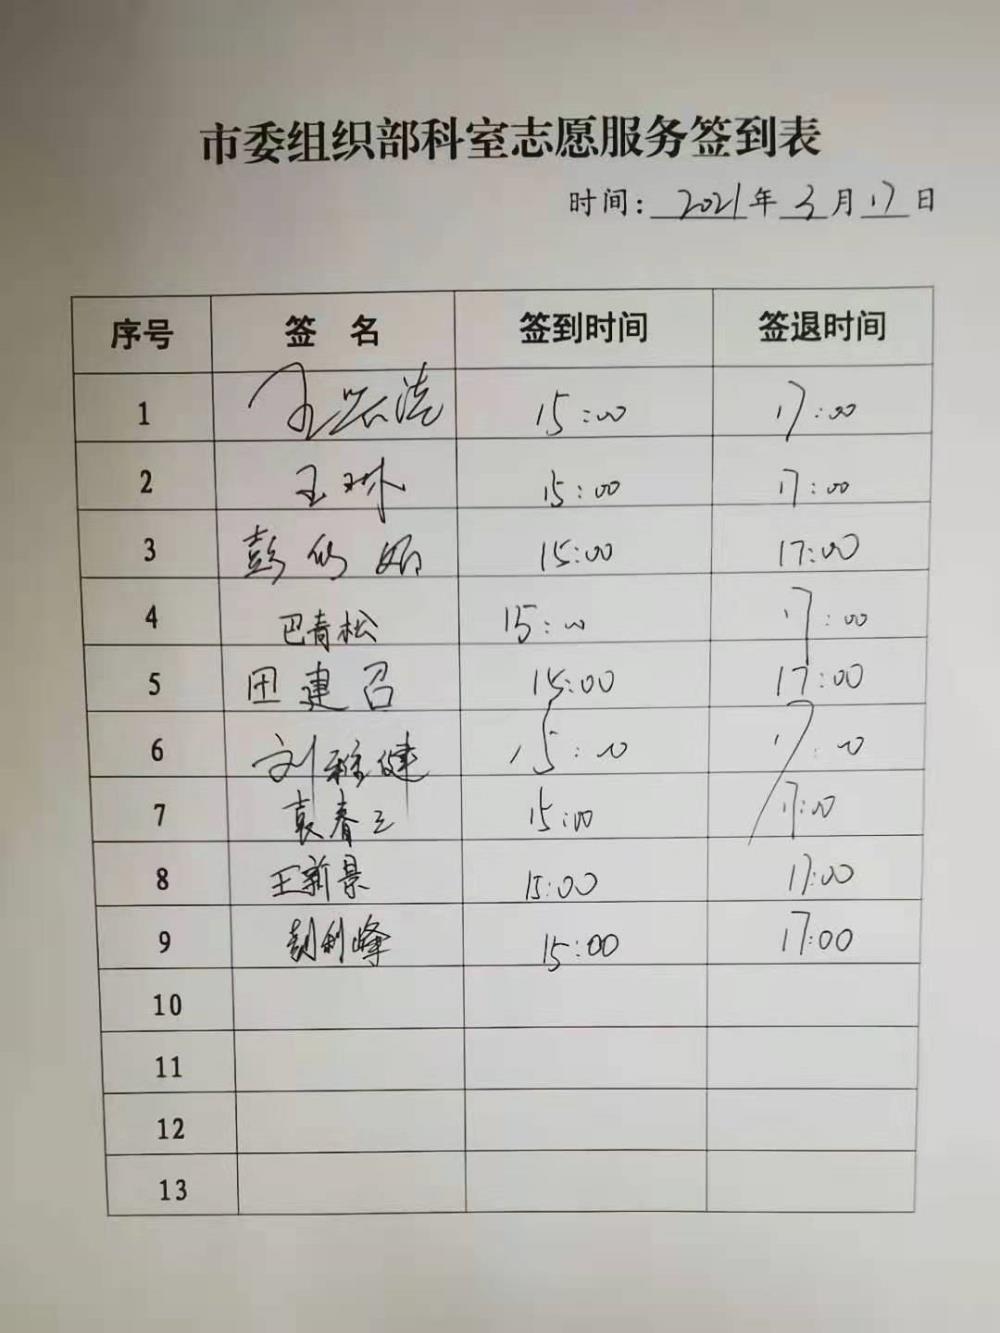 市委组织部科室志愿服务签到表
时间: 2021年 3月 17日
序号 签 名 签到时间 签退时间
1 王 15:00 17:00
2 王琳 15:00 17:00
3 彭 15:00 17:00
4 巴青松 15:00 17:00
5 田建召 15:00 17:00
6 刘 健 15:00 17:00
7 袁春 15:00 17:00
8 王新景 15:00 17:00
9 彭利峰 15:00 17:00
10
11
12
13